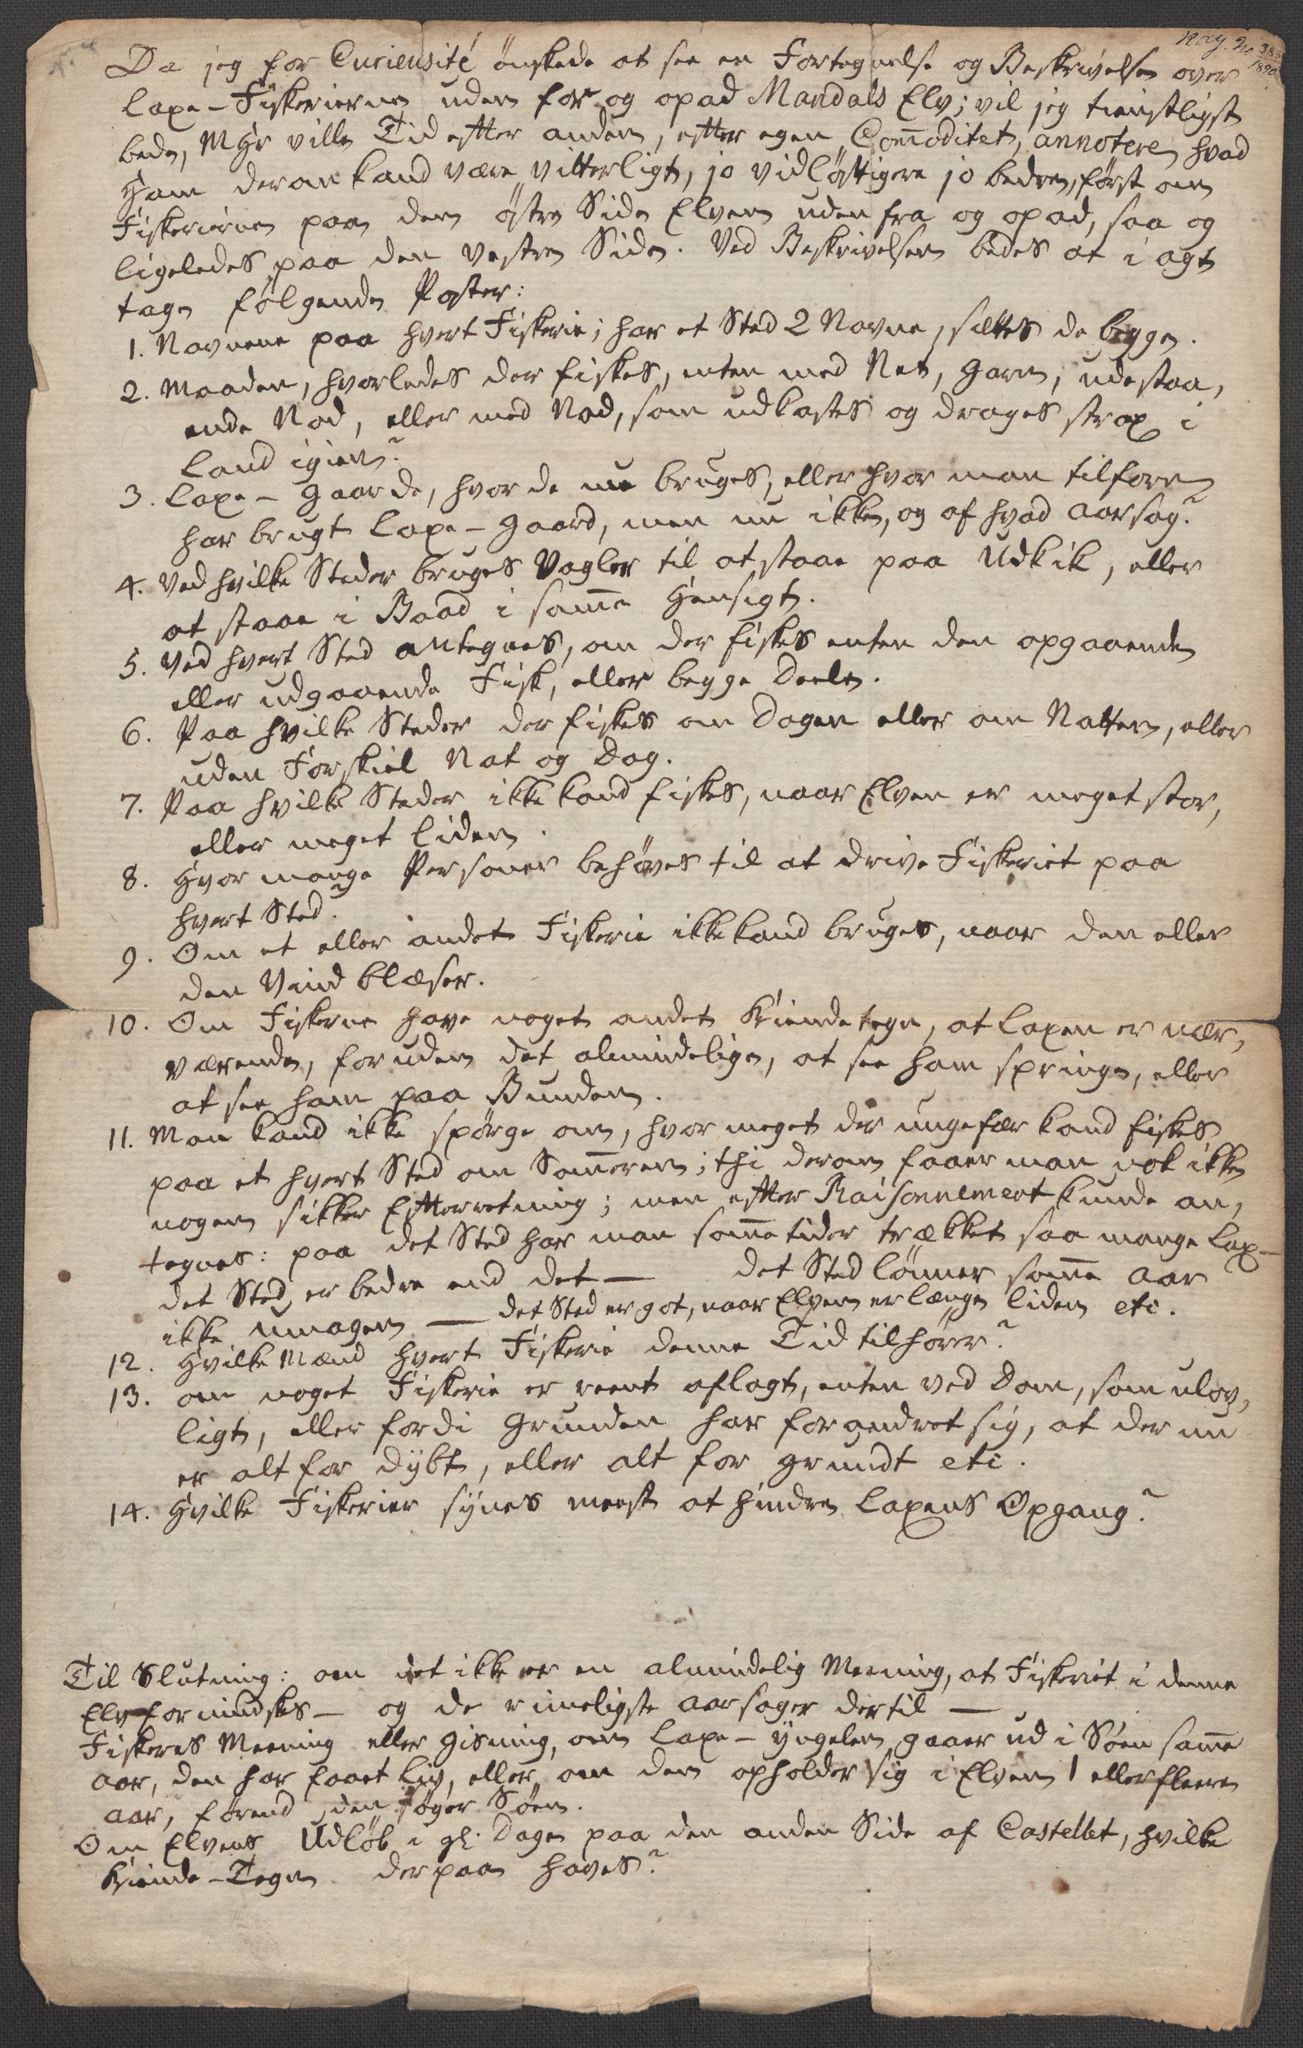 Da jeg for Curieusité önskede at see en Fortegnelse og Beskrivelse over
Laxe-Fiskerierne uden for og opad Mandals Elv; vil jeg tienstligst
bede, MHr ville Tid efter anden, efter egen Com̄oditet, annotere hvad
Ham derom kand være vitterligt, jo vidløftigere jo bedre, først om
Fiskerierne paa den östre Side Elven uden fra og opad, saa og
ligeledes paa den vestre Side. Ved Beskrivelsen bedes at i agt
tages følgende Poster:
1. Navnene paa hvert Fiskerie; har et Sted 2 Navne, sættes de begge.
2. Maaden, hvorledes der fiskes, enten med Net, Garn, udestaa,
ende Nod, eller med Nod, som udkastes og drages strax i
Land igien?
3. Laxe-Gaarde, hvor de nu bruges, eller hvor man tilforn
har brugt Laxe-Gaard, men nu ikke, og af hvad Aarsag?
4. Ved hvilke Steder bruges Vagler til at staae paa Udkik, eller
at staae i Baad i sam̄e Hensigt.
5. Ved hvert Sted antegnes, om der fiskes enten den opgaaende
eller udgaaende Fisk, eller begge Deele.
6. Paa hvilke Steder der fiskes om Dagen eller om Natten, eller
uden Forskiel Nat og Dag.
7. Paa hvilke Steder ikke kand fiskes, naar Elven er meget stor,
eller meget liden.
8. Hvor mange Personer behøves til at drive Fiskeriet paa
hvert Sted?
9. Om et eller andet Fiskerie ikke kand bruges, naar den eller
den Vind blæser.
10. Om Fiskerne have noget andet Kiendetegn, at Laxen er nær,
værende, foruden det almindelige, at see ham springe, eller
at see ham paa Bunden.
11. Man kand ikke spörge om, hvor meget der ungefær kand fiskes
paa et hvert Sted om Som̄eren; thi derom faaer man nok ikke
nogen sikker Efterretning; men efter Raisonnement kunde an,
tegnes: paa det Sted har man som̄etider trækket saa mange Lax-
det Sted er bedre end det — det Sted lönner som̄e Aar
ikke Umagen — det Sted er got, naar Elven er længe liden etc.
12. Hvilke Mænd hvert Fiskerie denne Tid tilhører?
13. om noget Fiskerie er reent aflagt, enten ved Dom, som ulov,
ligt, eller fordi Grunden har forandret sig, at der nu
er alt for dybt, eller alt for grundt etc.
14. Hvilke Fiskerier synes meest at hindre Laxens Opgang?
Til Slutning: om det ikke er en almindelig Meening, at Fiskeriet i denne
Elv formindskes — og de rimeligste Aarsager dertil —
Fiskeres Meening eller Gisning, om Laxe-Yngelen gaaer ud i Söen sam̄e
Aar, den har faaet Liv, eller om den opholder sig i Elven 1 eller fleere
Aar, førend den søger Søen.
Om Elvens Udløb i gl. Dage paa den anden Side af Castellet, hvilke
Kiende-Tegn derpaa haves?